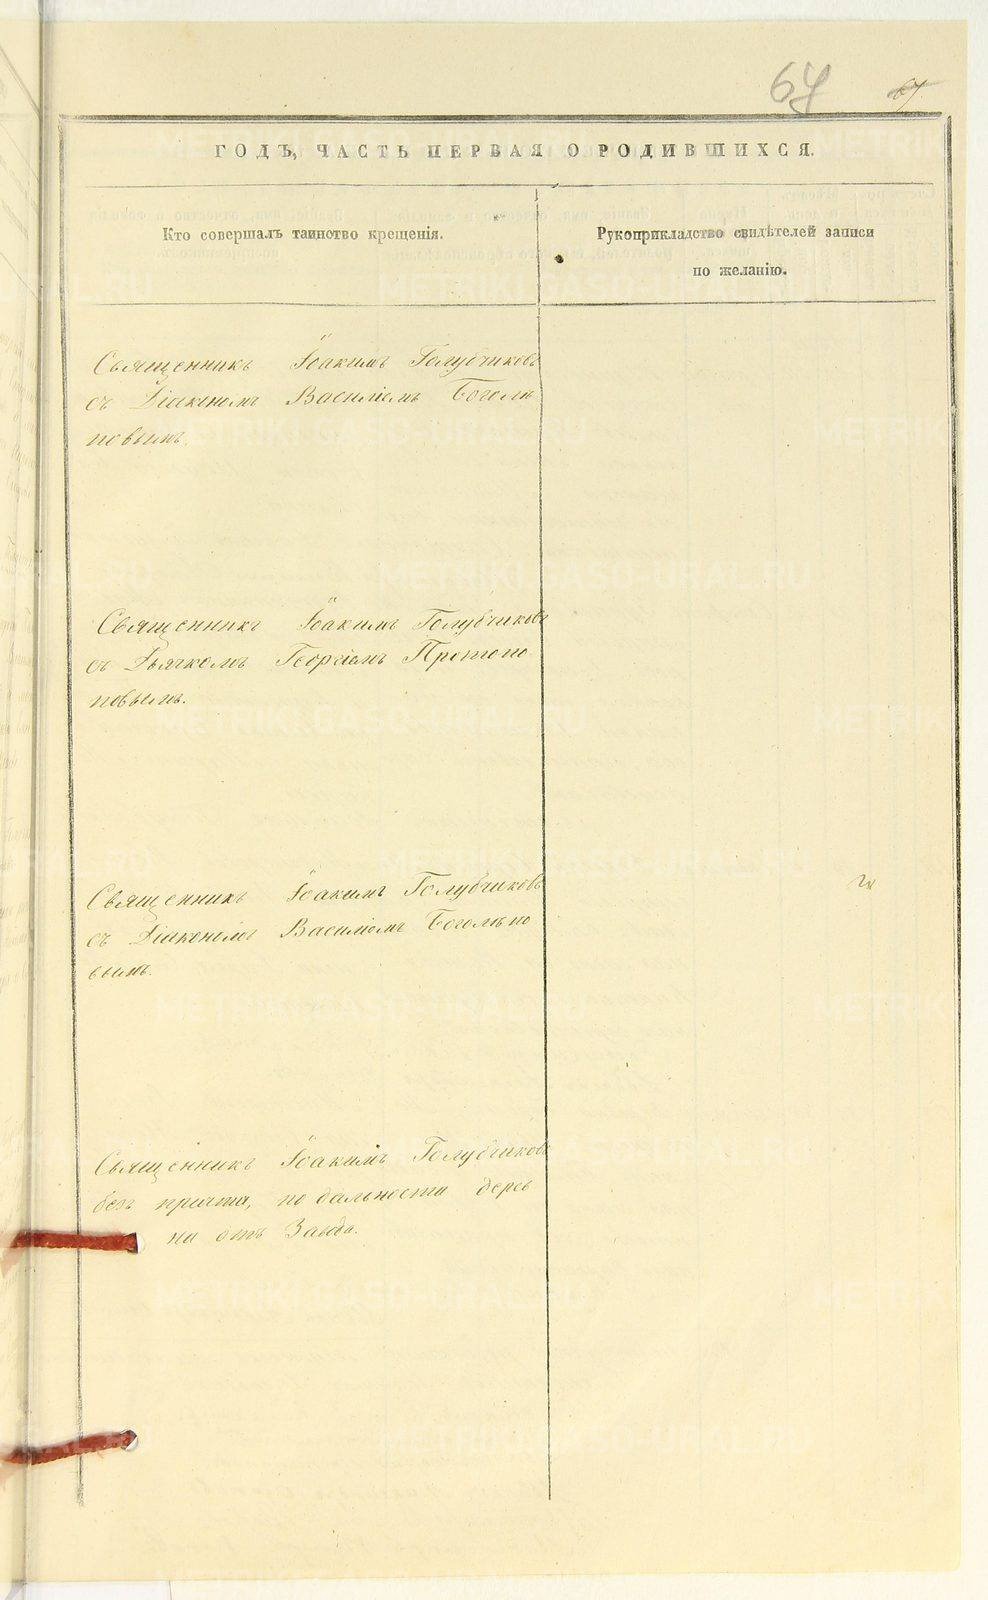 67
67
ГОДЪ, ЧАСТЬ ПЕРВАЯ О РОДИВШИХСЯ.
Кто совершалъ таинство крещенія.
Рукоприкладство свидѣтелей записи
по желанію.
Священникъ Іоакимъ Голубчиковъ
съ Діакономъ Василіемъ Боголѣ
повымъ.
Священникъ Іоакимъ Голубчиковъ
съ Дьячкомъ Георгіемъ Протопо
повымъ.
Священникъ Іоакимъ Голубчиковъ
съ Діакономъ Василіемъ Боголѣпо
вымъ.
Священникъ Іоакимъ Голубчиковъ
безъ причта, по дальности дерев
ни отъ Завода.
METRIKI.GASO-URAL.RU